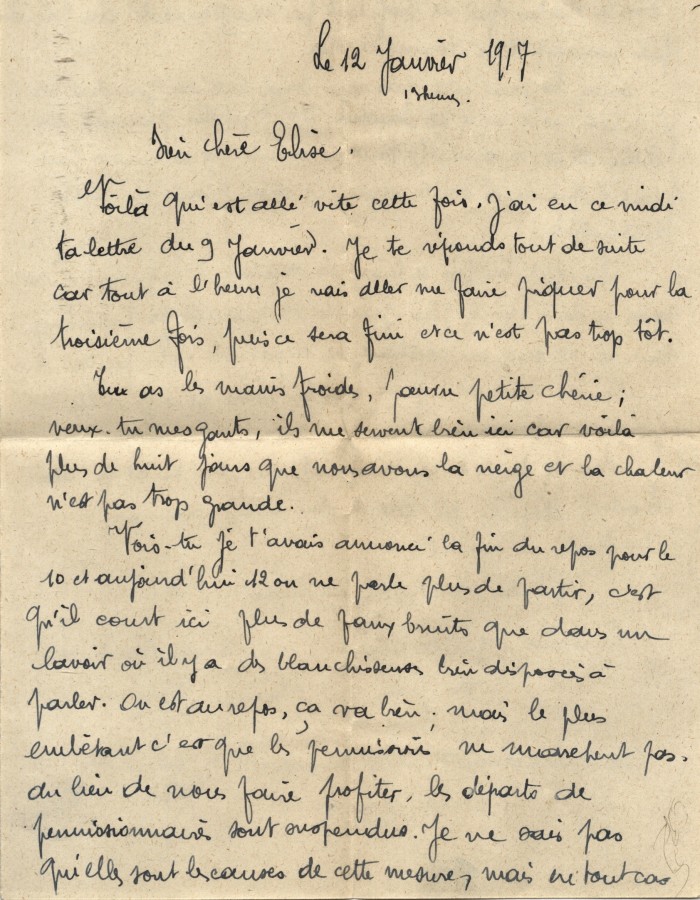 Le 12 Janvier 1917
13heures.
Bien chère Elise.
Et Voilà qui est allé vite cette fois. J'ai eu ce midi
ta lettre du 9 Janvier. Je te réponds tout de suite
car tout à l'heure je vais aller me faire piquer pour la
troisième fois, puis ce sera fini et ce n'est pas trop tôt.
Tu as les mains froides, pauvre petite chérie ;
veux-tu mes gants, ils me servent bien ici car voilà
plus de huit jours que nous avons la neige et la chaleur
n'est pas trop grande.
Vois-tu je t'avais annoncé la fin du repos pour le
10 et aujourd'hui 12 on ne parle plus de partir, c'est
qu'il court ici plus de faux bruits que dans un
lavoir où il y a des blanchisseuses bien disposées à
parler. On est au repos, ça va bien ; mais le plus
embêtant c'est que les permissions ne marchent pas.
au lieu de nous faire profiter, les départs de
permissionnaires sont suspendus. Je ne sais pas
qu'elles sont les causes de cette mesure, mais en tout cas